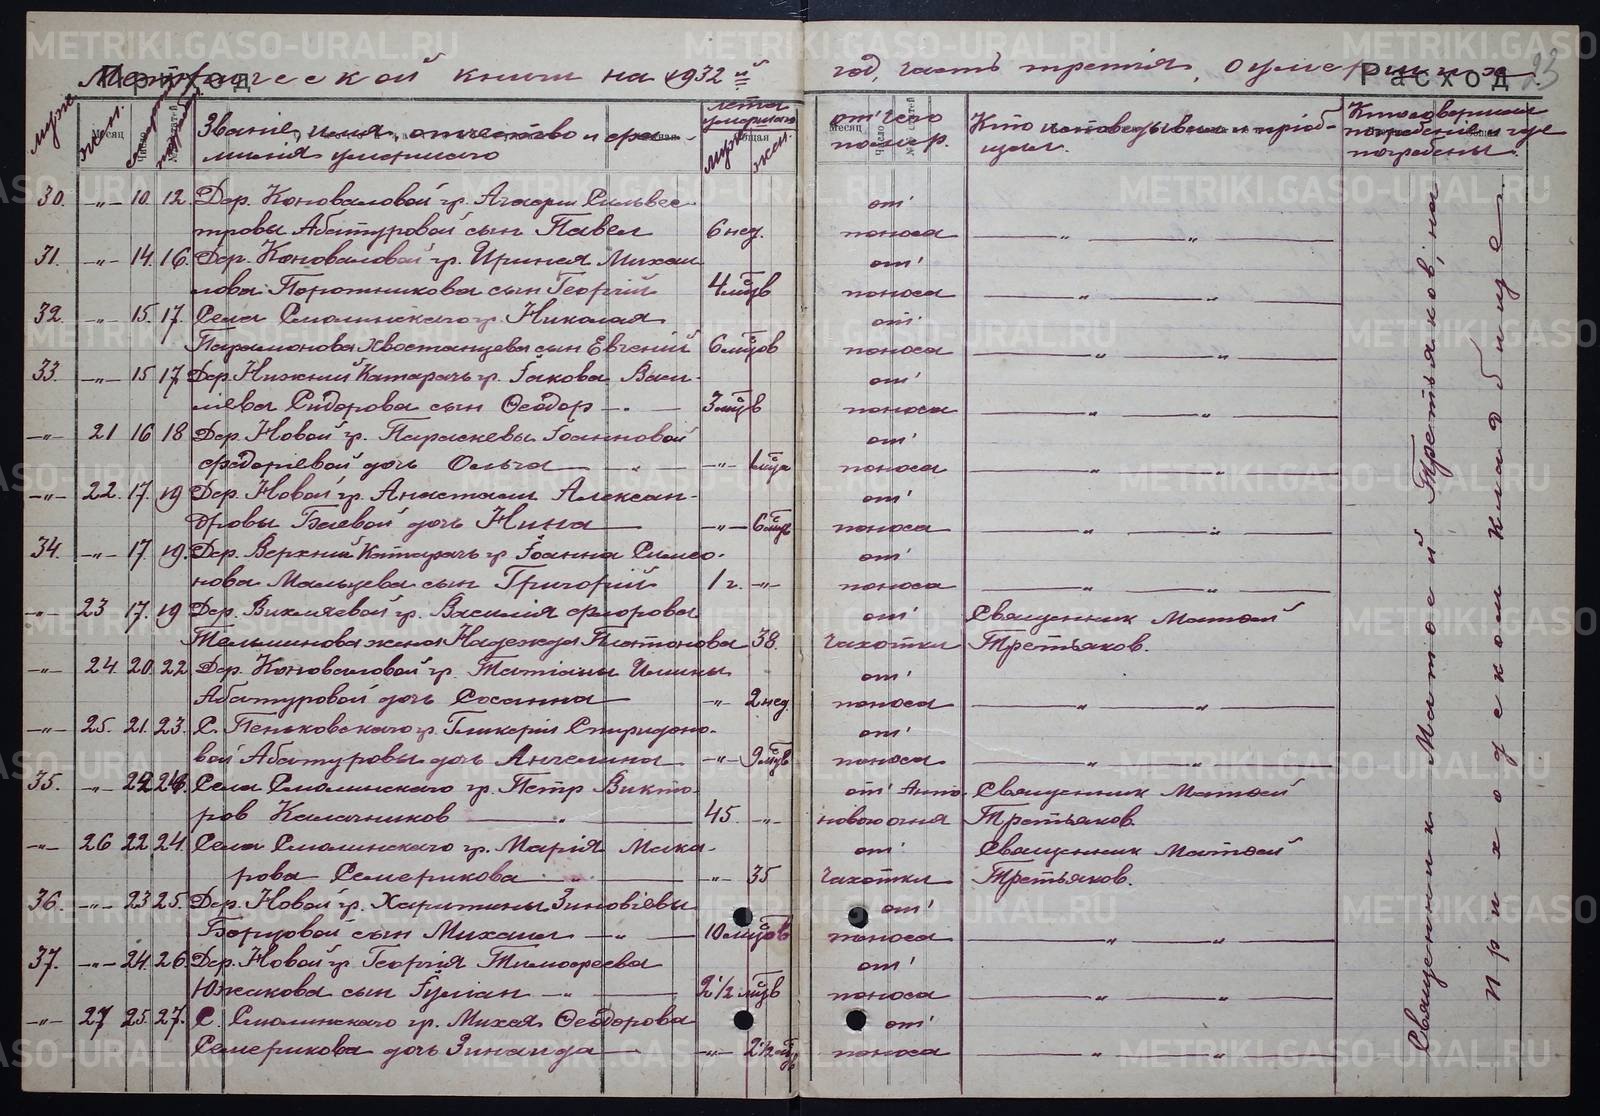 Метрической книги на 1932 й год, часть третья, о умерших.
Приход
Расход
23
муж. жен. смерти погребен.
Званіе, имя, отчество и фамилія умершаго
лета умершаго
муж. жен.
от чего помер.
Кто исповедывал и приобщал.
Кто совершал погребение и где погребены.
30. -„- 10. 12. Дер. Коноваловой гр. Агафіи Сильвес-
тровы Абатуровой сын Павел 6 нед. от поноса
31. -„- 14. 16. Дер. Коноваловой гр. Иринея Михаи
лова Поротникова сын Георгій 4 м-цв от поноса
32. -„- 15. 17. Села Смолинскаго гр. Николая
Парамонова Хвостанцева сын Евгений 6 м-цов от поноса
33. -„- 15 17 Дер. Нижний Катарачь гр. Іакова Васи-
ліева Сидорова сын Ѳеодор 3 м-цв от поноса
-„- 21 16 18 Дер. Новой гр. Параскевы Іоанновой
дочь Ольга -„- 1 м-ца от поноса
-„- 22. 17. 19 Дер. Новой гр. Анастасіи Алексан-
дровы Баевой дочь Нина -„- 6 м-цв от поноса
34. -„- 17. 19. Дер. Верхний Катарачь гр. Іоанна Симео-
нова Мальцева сын Григорій 1 г. -„- от поноса
-„- 23 17. 19 Дер. гр. Василія Флорова
Тельминова жена Надежда Платонова 38. от чахотки Священник Матѳей Третьяков.
-„- 24. 20. 22 Дер. Коноваловой гр. Татіаны Илиины
Абатуровой дочь Сосанна -„- 2 нед. от поноса
-„- 25. 21. 23. С. Пеньковскаго гр. Гликеріи Спиридоно-
вой Абатуровы дочь Ангелина -„- 9 м-цв от поноса
35. -„- 22 24. Села Смолинскаго гр. Петр Викто-
ров Калачников 45 -„- от Анто-
новою огня Священник Матѳей Третьяков.
-„- 26 22 24. Села Смолинскаго гр. Марія Мака-
рова Семерикова -„- 35 от чахотки Священник Матѳей Третьяков.
36. -„- 23 25. Дер. Новой гр. Харитины Зиновіевы
Борцовой сын Михаил 10 м-цов от поноса
37. -„- 24. 26. Дер. Новой гр. Георгія Тимофеева
Южакова сын Іуліан 2 1/2 м-цв от поноса
-„- 27 25. 27. С. Смолинскаго гр. Михея Ѳеодорова
Семерикова дочь Зинаида -„- 2 1/2 от поноса
Священник Матѳей Третьяков, на
приходском кладбище.
METRIKI.GASO-URAL.RU